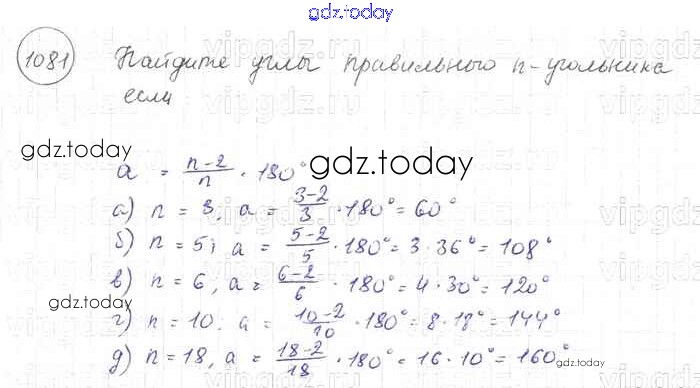 gdz.today
1081 Найдите углы правильного n-угольника
если
gdz.today
a = (n-2)/n · 180° gdz.today
а) n = 3, a = (3-2)/3 · 180° = 60°
б) n = 5, a = (5-2)/5 · 180° = 3 · 36° = 108°
в) n = 6, a = (6-2)/6 · 180° = 4 · 30° = 120°
gdz.today
г) n = 10. a = (10-2)/10 · 180° = 8 · 18° = 144°
д) n = 18, a = (18-2)/18 · 180° = 16 · 10° = 160°
gdz.today